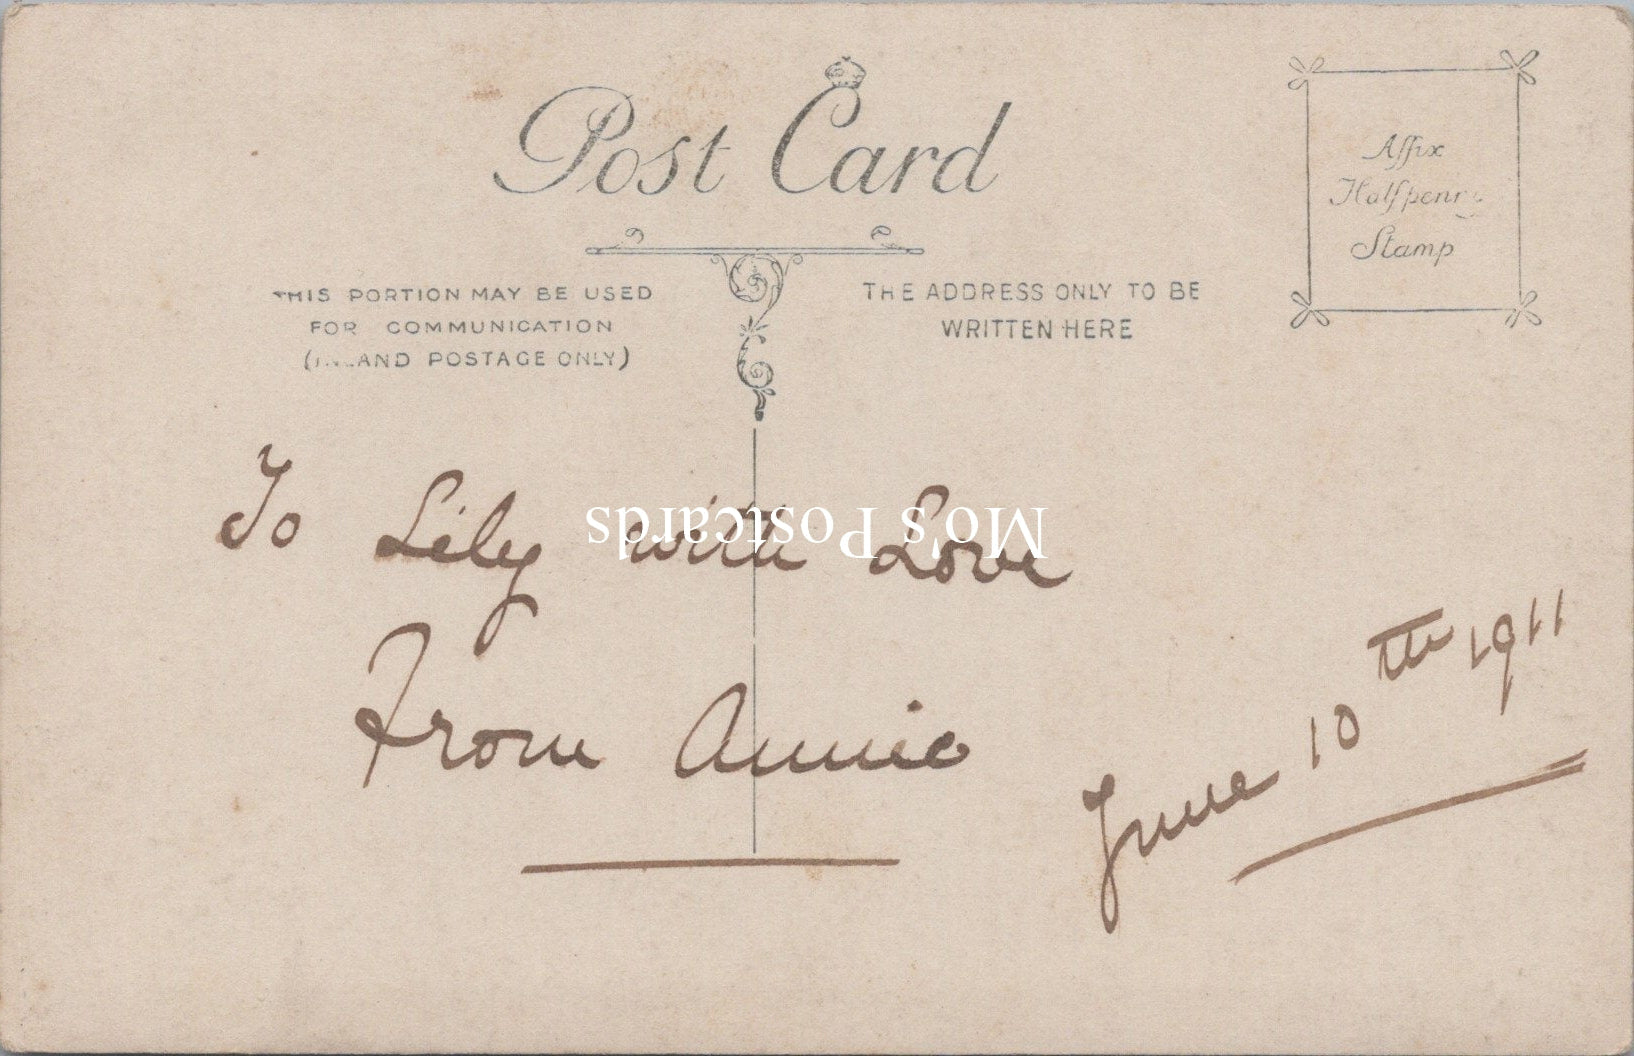 Post Card
Affix
Halfpenny
Stamp
THIS PORTION MAY BE USED
FOR COMMUNICATION
(INLAND POSTAGE ONLY)
THE ADDRESS ONLY TO BE
WRITTEN HERE
To Lily with Love
Mo's Postcards
From Annie
June 10th 1911